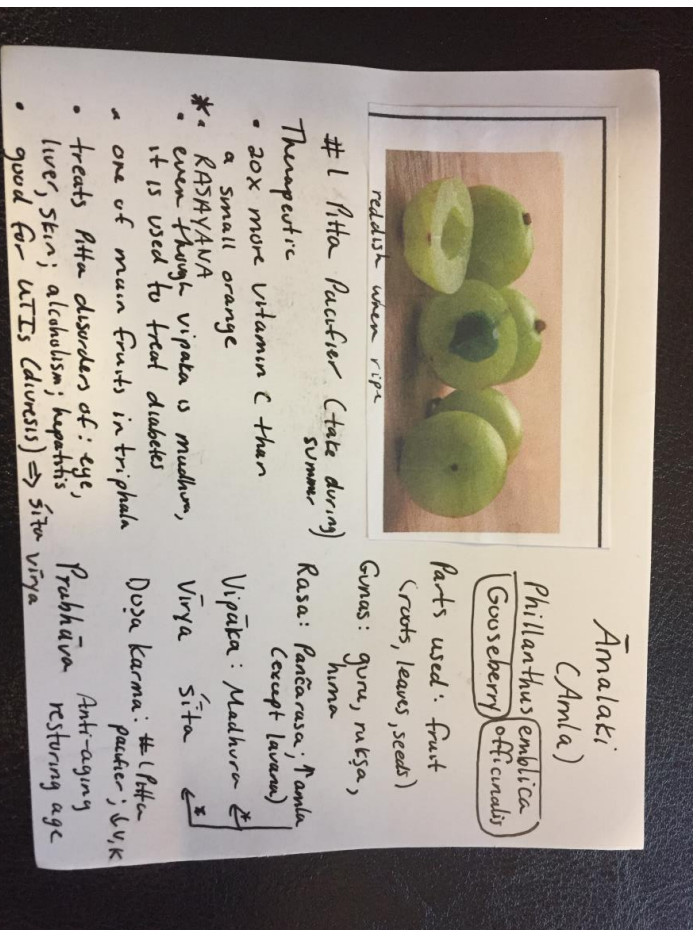 Āmalaki
(Amla)
Phillanthus emblica
Gooseberry officinalis
Parts used: fruit
(roots, leaves, seeds)
Gunas: guru, rukṣa,
hima
Rasa: Pañcarasa; ↑ amla
(except lavana)
Vipāka: Madhura *
Vīrya Śīta *
Doṣa Karma: #1 Pitta
pacifier; ↓V,K
Prabhāva Anti-aging
restoring age
reddish when ripe
#1 Pitta Pacifier (take during)
summer
Therapeutic
• 20x more vitamin C than
a small orange
* • RASAYANA
• even though vipaka is madhura,
it is used to treat diabetes
• one of main fruits in triphala
• treats Pitta disorders of: eye,
liver, skin; alcoholism; hepatitis
• good for UTIs (diuresis) ⇒ śīta vīrya